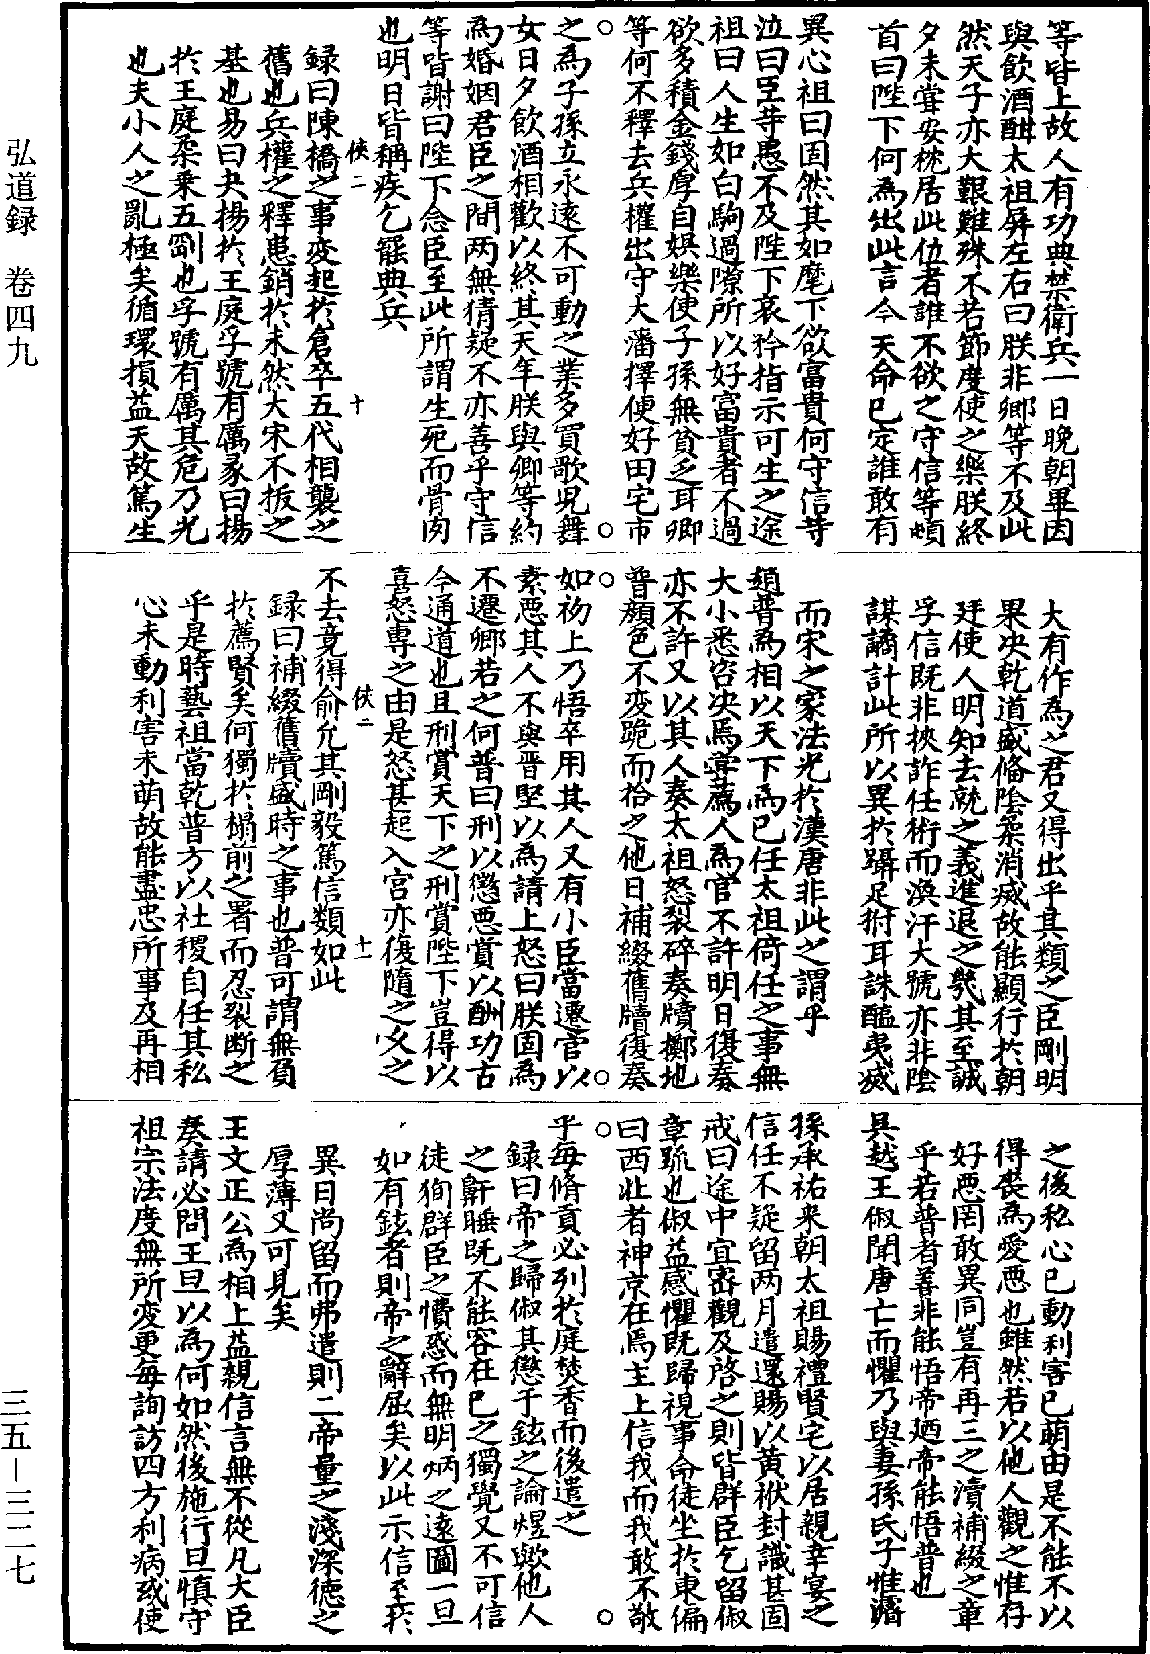 等皆上故人有功典禁衛兵一日晚朝畢因
與飲酒酣太祖屏左右曰朕非卿等不及此
然天子亦大艱難殊不若節度使之樂朕終
夕未嘗安枕居此位者誰不欲之守信等頓
首曰陛下何為出此言今天命已定誰敢有
異心祖曰固然其如麾下欲富貴何守信等
泣曰臣等愚不及陛下哀矜指示可生之途
祖曰人生如白駒過隙所以好富貴者不過
欲多積金錢厚自娛樂使子孫無貧乏耳卿
等何不釋去兵權出守大藩擇便好田宅市
之為子孫立永遠不可動之業多買歌兒舞
女日夕飲酒相歡以終其天年朕與卿等約
為婚姻君臣之間两無猜疑不亦善乎守信
等皆謝曰陛下念臣至此所謂生死而骨肉
也明日皆稱疾乞罷典兵
錄曰陳橋之事变起於倉卒五代相襲之
舊也兵權之釋患銷於未然大宋不拔之
基也易曰夬揚於王庭孚號有厲彖曰揚
於王庭柔乗五剛也孚號有厲其危乃光
也夫小人之亂極矣循環損益天故篤生
俠二
十
大有作為之君又得出乎其類之臣剛明
果决乾道盛脩陰柔消滅故能顯行於朝
廷使人明知去就之義進退之幾其至誠
孚信既非挾詐任術而渙汗大號亦非陰
謀譎計此所以異於躡足拊耳誅醢夷滅
而宋之家法光於漢唐非此之謂乎
趙普為相以天下為已任太祖倚任之事無
大小悉咨决焉嘗薦人為官不許明日復奏
亦不許又以其人奏太祖怒裂碎奏牘擲地
普顏色不変跪而拾之他日補綴舊牘復奏
如初上乃悟卒用其人又有小臣當遷官以
素惡其人不與普堅以為請上怒曰朕固為
不遷卿若之何普曰刑以懲惡賞以酬功古
今通道也且刑賞天下之刑賞陛下豈得以
喜怒專之由是怒甚起入宮亦復隨之久之
不去竟得俞允其剛毅篤信類如此
錄曰補綴舊牘盛時之事也普可謂無負
於薦賢矣何獨於榻前之署而忍裂断之
乎是時藝祖當乾普方以社稷自任其私
心未動利害未萌故能盡忠所事及再相
俠二
十一
之後私心已動利害已萌由是不能不以
得喪為愛惡也雖然若以他人觀之惟存
好惡罔敢異同豈有再三之瀆補綴之章
乎若普者善非能悟帝廼帝能悟普也
吳越王俶聞唐亡而懼乃與妻孫氏子惟濬
孫承祐来朝太祖賜禮賢宅以居親幸宴之
信任不疑留两月遣還賜以黄袱封識甚固
戒曰途中宜密觀及啓之則皆群臣乞留俶
章䟽也俶益感懼既歸視事命徒坐於東偏
曰西北者神京在焉主上信我而我敢不敬
乎每脩貢必列於庭焚香而後遣之
錄曰帝之歸俶其懲于鉉之論煜歟他人
之鼾睡既不能容在已之獨覺又不可信
徒狥群臣之憒惑而無明炳之遠圖一旦
如有鉉者則帝之辭屈矣以此示信至於
異日尚留而弗遣則二帝量之淺深徳之
厚薄又可見矣
王文正公為相上益親信言無不從凡大臣
奏請必問王旦以為何如然後施行旦慎守
祖宗法度無所変更每詢訪四方利病或使
弘道録　卷四九
三五－三二七